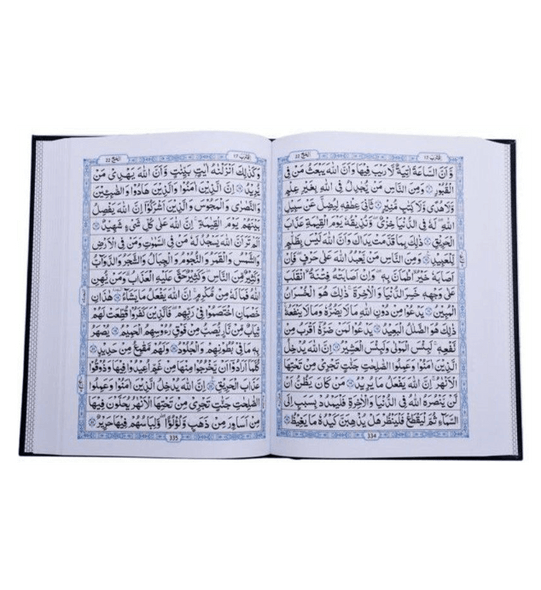 اقترب ١٧
الحج ٢٢
وَّاَنَّ السَّاعَةَ اٰتِيَةٌ لَّا رَيْبَ فِيْهَا وَاَنَّ اللّٰهَ يَبْعَثُ مَنْ فِى
الْقُبُوْرِ وَمِنَ النَّاسِ مَنْ يُّجَادِلُ فِى اللّٰهِ بِغَيْرِ عِلْمٍ
وَّلَا هُدًى وَّلَا كِتٰبٍ مُّنِيْرٍ ثَانِىَ عِطْفِهٖ لِيُضِلَّ عَنْ سَبِيْلِ
اللّٰهِ لَهٗ فِى الدُّنْيَا خِزْىٌ وَّنُذِيْقُهٗ يَوْمَ الْقِيٰمَةِ عَذَابَ
الْحَرِيْقِ ذٰلِكَ بِمَا قَدَّمَتْ يَدٰكَ وَاَنَّ اللّٰهَ لَيْسَ بِظَلَّامٍ
لِّلْعَبِيْدِ وَمِنَ النَّاسِ مَنْ يَّعْبُدُ اللّٰهَ عَلٰى حَرْفٍ فَاِنْ
اَصَابَهٗ خَيْرُ ۨاطْمَاَنَّ بِهٖ وَاِنْ اَصَابَتْهُ فِتْنَةُ ۨانْقَلَبَ
عَلٰى وَجْهِهٖ خَسِرَ الدُّنْيَا وَالْاٰخِرَةَ ذٰلِكَ هُوَ الْخُسْرَانُ
الْمُبِيْنُ يَدْعُوْا مِنْ دُوْنِ اللّٰهِ مَا لَا يَضُرُّهٗ وَمَا لَا يَنْفَعُهٗ
ذٰلِكَ هُوَ الضَّلٰلُ الْبَعِيْدُ يَدْعُوْا لَمَنْ ضَرُّهٗ اَقْرَبُ مِنْ
نَّفْعِهٖ لَبِئْسَ الْمَوْلٰى وَلَبِئْسَ الْعَشِيْرُ اِنَّ اللّٰهَ يُدْخِلُ
الَّذِيْنَ اٰمَنُوْا وَعَمِلُوا الصّٰلِحٰتِ جَنّٰتٍ تَجْرِىْ مِنْ تَحْتِهَا
الْاَنْهٰرُ اِنَّ اللّٰهَ يَفْعَلُ مَا يُرِيْدُ مَنْ كَانَ يَظُنُّ اَنْ
لَّنْ يَّنْصُرَهُ اللّٰهُ فِى الدُّنْيَا وَالْاٰخِرَةِ فَلْيَمْدُدْ بِسَبَبٍ اِلَى
السَّمَآءِ ثُمَّ لْيَقْطَعْ فَلْيَنْظُرْ هَلْ يُذْهِبَنَّ كَيْدُهٗ مَا يَغِيْظُ
334
اقترب ١٧
الحج ٢٢
وَكَذٰلِكَ اَنْزَلْنٰهُ اٰيٰتٍۭ بَيِّنٰتٍ وَّاَنَّ اللّٰهَ يَهْدِىْ مَنْ
يُّرِيْدُ اِنَّ الَّذِيْنَ اٰمَنُوْا وَالَّذِيْنَ هَادُوْا وَالصّٰبِـِٕيْنَ
وَالنَّصٰرٰى وَالْمَجُوْسَ وَالَّذِيْنَ اَشْرَكُوْٓا اِنَّ اللّٰهَ يَفْصِلُ
بَيْنَهُمْ يَوْمَ الْقِيٰمَةِ اِنَّ اللّٰهَ عَلٰى كُلِّ شَىْءٍ شَهِيْدٌ
اَلَمْ تَرَ اَنَّ اللّٰهَ يَسْجُدُ لَهٗ مَنْ فِى السَّمٰوٰتِ وَمَنْ فِى الْاَرْضِ
وَالشَّمْسُ وَالْقَمَرُ وَالنُّجُوْمُ وَالْجِبَالُ وَالشَّجَرُ وَالدَّوَآبُّ
وَكَثِيْرٌ مِّنَ النَّاسِ وَكَثِيْرٌ حَقَّ عَلَيْهِ الْعَذَابُ وَمَنْ يُّهِنِ
اللّٰهُ فَمَا لَهٗ مِنْ مُّكْرِمٍ اِنَّ اللّٰهَ يَفْعَلُ مَا يَشَآءُ هٰذٰنِ
خَصْمٰنِ اخْتَصَمُوْا فِىْ رَبِّهِمْ فَالَّذِيْنَ كَفَرُوْا قُطِّعَتْ لَهُمْ
ثِيَابٌ مِّنْ نَّارٍ يُصَبُّ مِنْ فَوْقِ رُءُوْسِهِمُ الْحَمِيْمُ يُصْهَرُ
بِهٖ مَا فِىْ بُطُوْنِهِمْ وَالْجُلُوْدُ وَلَهُمْ مَّقَامِعُ مِنْ حَدِيْدٍ
كُلَّمَآ اَرَادُوْٓا اَنْ يَّخْرُجُوْا مِنْهَا مِنْ غَمٍّ اُعِيْدُوْا فِيْهَا وَذُوْقُوْا
عَذَابَ الْحَرِيْقِ اِنَّ اللّٰهَ يُدْخِلُ الَّذِيْنَ اٰمَنُوْا وَعَمِلُوا
الصّٰلِحٰتِ جَنّٰتٍ تَجْرِىْ مِنْ تَحْتِهَا الْاَنْهٰرُ يُحَلَّوْنَ فِيْهَا
مِنْ اَسَاوِرَ مِنْ ذَهَبٍ وَّلُؤْلُؤًا وَلِبَاسُهُمْ فِيْهَا حَرِيْرٌ
335